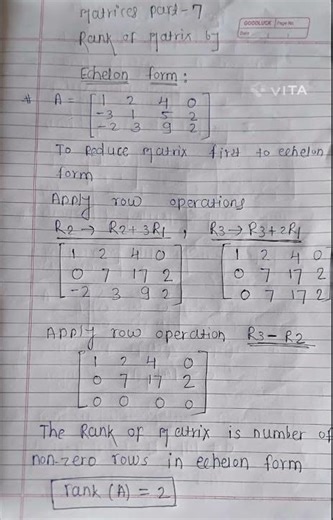 Matrices part-7
GOODLUCK Page No.
Date
Rank of Matrix by
Echelon form :
VITA
* A = [1 2 4 0
-3 1 5 2
-2 3 9 2]
To Reduce Matrix first to echelon
form
Apply row operations
R2 → R2+3R1 , R3 → R3+2R1
[1 2 4 0
0 7 17 2
-2 3 9 2] [1 2 4 0
0 7 17 2
0 7 17 2]
Apply row operation R3-R2
[1 2 4 0
0 7 17 2
0 0 0 0]
The Rank of Matrix is number of
non-zero rows in echelon form
rank (A) = 2